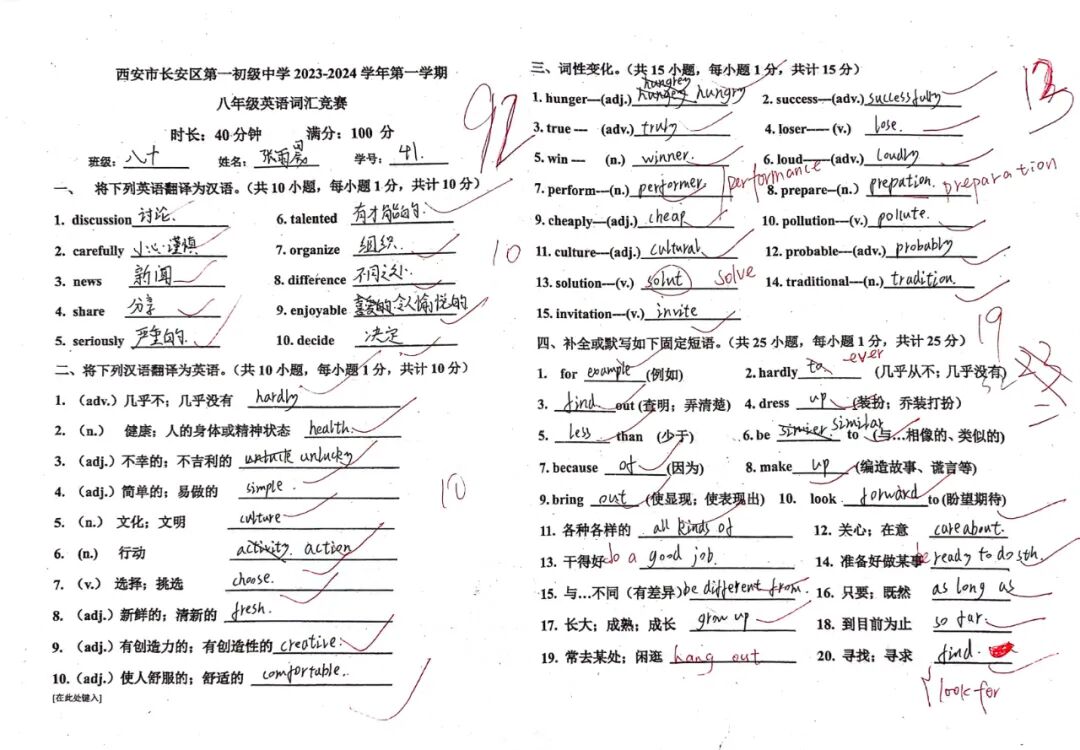 西安市长安区第一初级中学 2023-2024 学年第一学期
八年级英语词汇竞赛
时长：40 分钟 满分：100 分
92
班级：八十 姓名：张雨 学号：41.
一、 将下列英语翻译为汉语。（共 10 小题，每小题 1 分，共计 10 分）
1. discussion 讨论. 6. talented 有才能的.
2. carefully 小心谨慎 7. organize 组织.
10
3. news 新闻 8. difference 不同之处.
4. share 分享 9. enjoyable 喜爱的.令人愉悦的
5. seriously 严重的. 10. decide 决定
二、将下列汉语翻译为英语。（共 10 小题，每小题 1 分，共计 10 分）
1. （adv.）几乎不；几乎没有 hardly
2. （n.） 健康；人的身体或精神状态 health.
3. （adj.）不幸的；不吉利的 unlucky
4. （adj.）简单的；易做的 simple.
10
5. （n.） 文化；文明 culture
6. (n.) 行动 activity. action
7. （v.） 选择；挑选 choose.
8. （adj.）新鲜的；清新的 fresh.
9. （adj.）有创造力的；有创造性的 creative.
10.（adj.）使人舒服的；舒适的 comfortable.
[在此处键入]
三、词性变化。（共 15 小题，每小题 1 分，共计 15 分）
13
hungrey
1. hunger---(adj.) hungey hungry 2. success---(adv.) successfully
3. true --- (adv.) truly 4. loser----- (v.) lose.
5. win --- (n.) winner. 6. loud-----(adv.) loudly
7. perform---(n.) performer. performance 8. prepare--(n.) prepation. preparation
9. cheaply---(adj.) cheap 10. pollution---(v.) pollute.
11. culture---(adj.) cultural. 12. probable---(adv.) probably
13. solution---(v.) solut solve 14. traditional---(n.) tradition.
15. invitation---(v.) invite
19
四、补全或默写如下固定短语。（共 25 小题，每小题 1 分，共计 25 分）
1. for example (例如) 2. hardly to -ever (几乎从不；几乎没有)
23
3. find out (查明；弄清楚) 4. dress up (装扮；乔装打扮）
5. less than （少于） 6. be simier similar to （与...相像的、类似的)
7. because of (因为) 8. make up (编造故事、谎言等)
9. bring out (使显现；使表现出) 10. look forward to (盼望期待)
11. 各种各样的 all kinds of 12. 关心；在意 care about.
13. 干得好 do a good job. 14. 准备好做某事 be ready to do sth
15. 与...不同（有差异) be different from. 16. 只要；既然 as long as
17. 长大；成熟；成长 grow up 18. 到目前为止 so far.
19. 常去某处；闲逛 hang out 20. 寻找；寻求 find.
look for